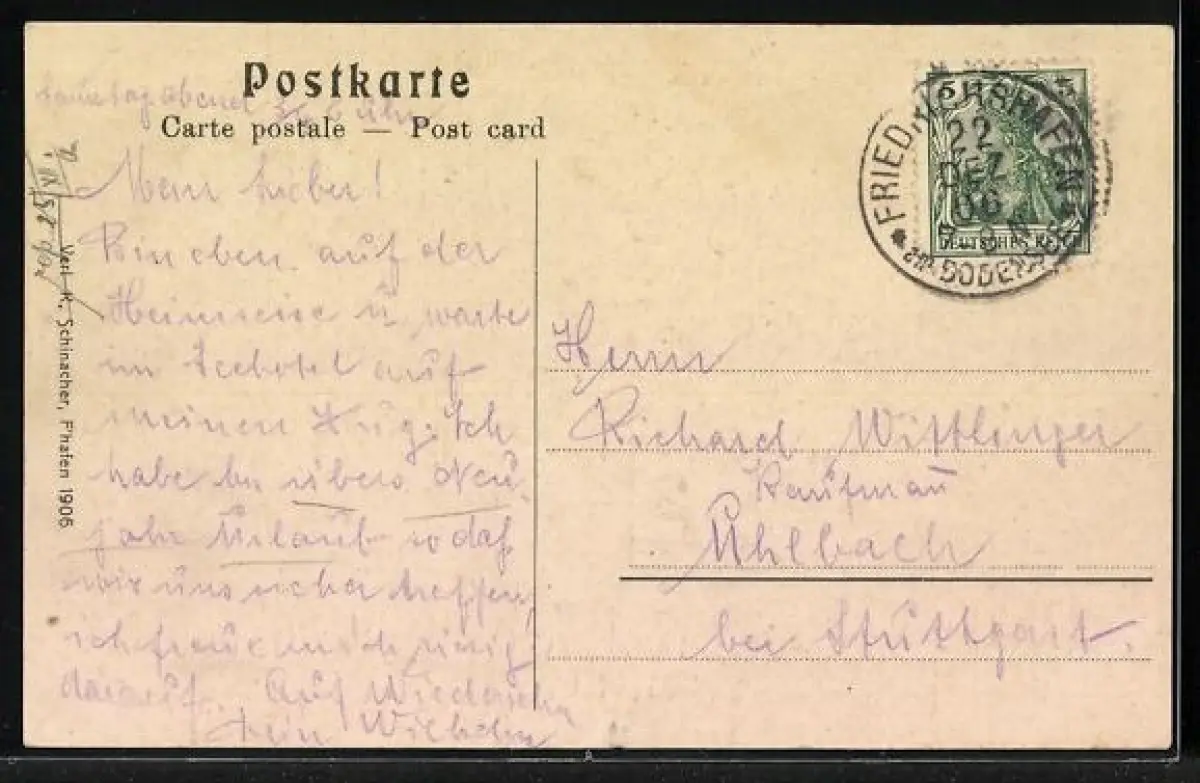 Postkarte
Carte postale — Post card
Samstag abend 3/4 6 Uhr
Mein Lieber!
Bin eben auf der
Heimreise u. warte
im Seehotel auf
meinen Zug. Ich
habe bis übers Neu-
jahr Urlaub so daß
wir uns sicher treffen,
ich freue mich riesig
darauf. Auf Wiedersehn
Dein Wilhelm
Verl. K. Schinacher, F'hafen 1906
FRIEDRICHSHAFEN
22
DEZ
06
am BODENSEE
5
DEUTSCHES REICH
Herrn
Richard Wittlinger
Kaufman̄
Uhlbach
bei Stuttgart.